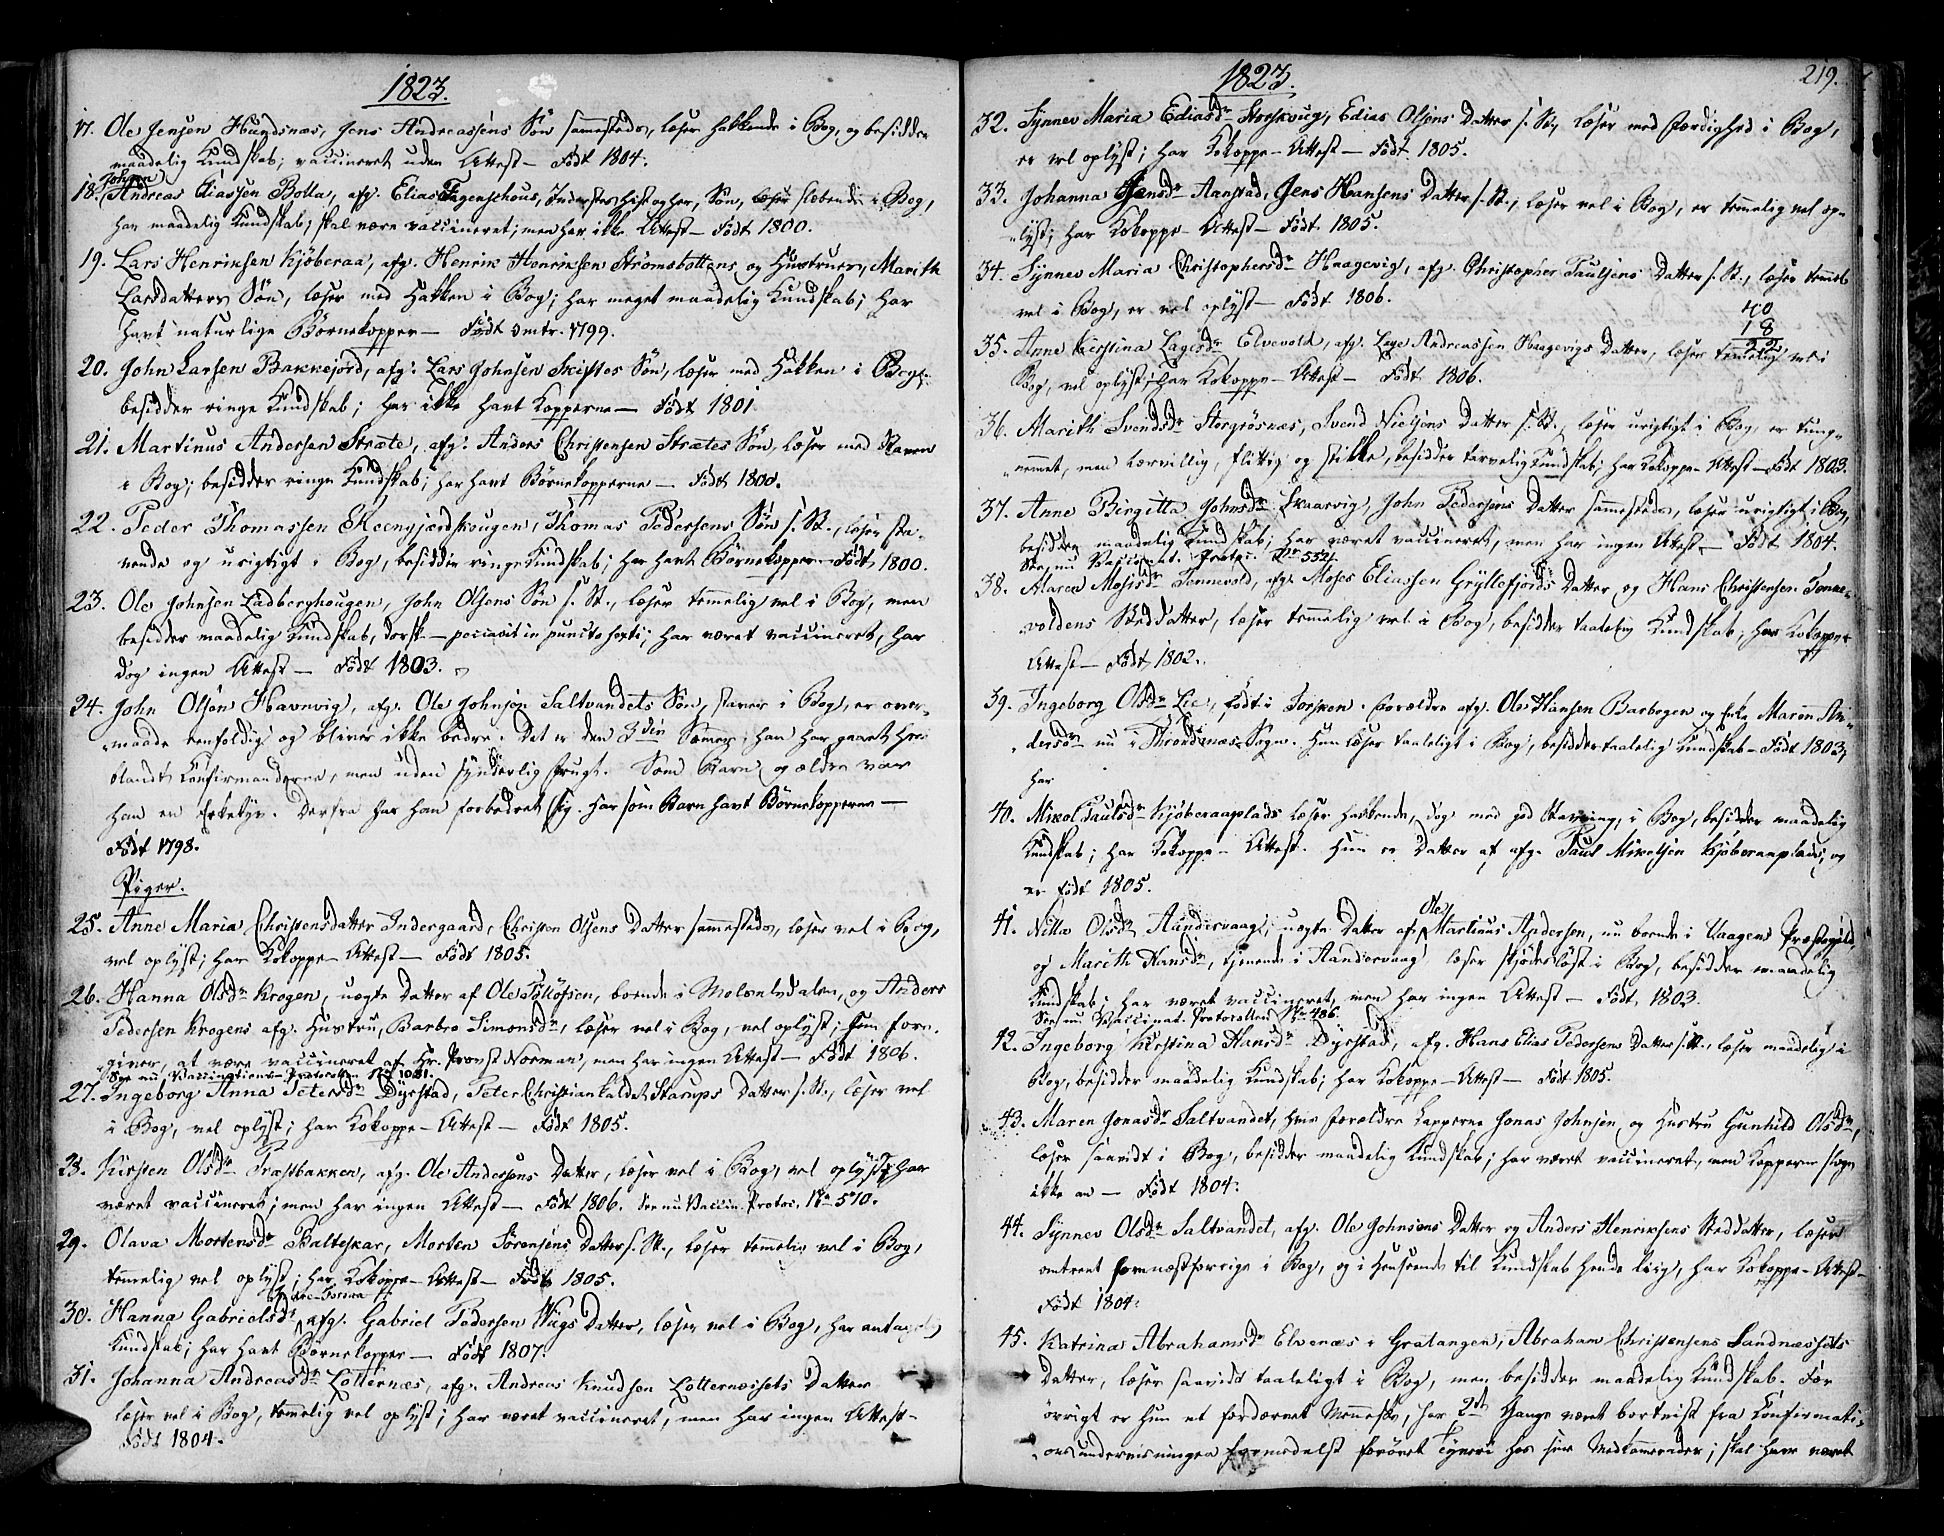 1823.
17. Ole Jensen Hundsnæs, Jens Andreassens Søn sammesteds, læser hakkende i Bog, og besidder
maadelig Kundskab; vaccineret uden Attest – Født 1804.
Johan
18. Andreas Eliassen Bolla, afg. Elias Fagensehous, Inderstes hist og her, Søn, læser slæbende i Bog,
har maadelig Kundskab; skal være vaccineret; men har ikke Attest – Født 1800.
19. Lars Henriksen Kjøberaa, afg. Henrik Henriksen Strømsbottens og Hustrues, Marith
Larsdatters Søn, læser med Hakken i Bog; har meget maadelig Kundskab; har
havt naturlige Børnekopper – Født omtr. 1799.
20. John Larsen Bakkejord, afg. Lars Johnsen Skiftes Søn, læser med Hakken i Bog;
besidder ringe Kundskab; har ikke havt Kopperne – Født 1801.
21. Martinus Andersen Stræte, afg. Anders Christensen Strætes Søn, læser med Staven
i Bog; besidder ringe Kundskab; har havt Børnekopperne – Født 1800.
22. Peder Thomassen Reengjærdskougen, Thomas Pedersens Søn s. St., læser sta-
vende og urigtigt i Bog, besidder ringe Kundskab; har havt Børnekopper – Født 1800.
23. Ole Johnsen Ladberghougen, John Olsens Søn s. St., læser temmelig vel i Bog, men
besidder maadelig Kundskab, dorsk – peccavit in puncto sexti; har været vaccineret, har
dog ingen Attest – Født 1803.
24. John Olsen Havnvig, afg. Ole Johnsen Saltvandets Søn, staver i Bog, er over-
maade eenfoldig og bliver ikke bedre. Det er den 3die Sommer, han har gaaet her
blandt Konfirmanderne, men uden synderlig Frugt. Som Barn og ældre var
han en Erketyv. Derfra har han forbedret sig. Har som Barn havt Børnekopperne –
Født 1798.
Piger.
25. Anne Maria Christensdatter Indergaard, Christen Olsens Datter sammesteds, læser vel i Bog,
vel oplyst; har Kokoppe-Attest – Født 1805.
26. Hanna Olsdr Krogen, uægte Datter af Ole Tollofsen, boende i Molselvdalen, og Anders
Pedersen Krogens afg. Hustru, Barbro Simonsdr, læser vel i Bog, vel oplyst; hun fore-
giver, at være vaccineret af Hr. Provst Norman, men har ingen Attest – Født 1806.
See nu Vaccinations-Protocollen No 1031.
27. Ingeborg Anna Petersdr Dyrstad, Peter Christian Kaldet Starups Datter s. St., læser vel
i Bog, vel oplyst; har Kokoppe-Attest – Født 1805.
28. Kirsten Olsdr Præstbakken, afg. Ole Andersens Datter, læser vel i Bog, vel oplyst; har
været vaccineret; men har ingen Attest – Født 1806. See nu Vaccin. Protoc. No 510.
29. Olava Mortensdr Balteskar, Morten Sørensens Datter s. St., læser temmelig vel i Bog,
temmelig vel oplyst; har Kokoppe-Attest – Født 1805.
30. Hanna Gabrielsdr afg. Gabriel Pedersen Vigs Datter, læser vel i Bog, har antagelig
Kundskab; har havt Børnekopper – Født 1807.
31. Johanna Andreasdr Lotternæs, afg. Andreas Knudsen Lotternæssets Datter
læser vel i Bog, temmelig vel oplyst; har været vaccineret, men har ingen Attest –
Født 1804.
1823.
219.
32. Synnev Maria Ediasdr Strøskvig, Edias Olsens Datter s. St., læser med Færdighed i Bog,
er vel oplyst; har Kokoppe-Attest – Født 1805.
33. Johanna Jensdr Aanstad, Jens Hansens Datter s. St., læser vel i Bog, er temmelig vel op-
lyst; har Kokoppe-Attest – Født 1805.
34. Synnev Maria Christophersdr Haagevig, afg. Christopher Paulsens Datter s. St., læser temmelig
vel i Bog, er vel oplyst – Født 1806.
40
18
22
35. Anne Kirstina Lagesdr Elvevold, afg. Lage Andreassen Haagevigs Datter, læser temmelig vel i
Bog, vel oplyst; har Kokoppe-Attest – Født 1806.
36. Marith Svendsdr Storgrøsnæs, Svend Nielsens Datter s. St., læser urigtigt i Bog, er tung-
nemmet, men lærvillig, flittig og stikke, besidder tarvelig Kundskab; har Kokoppe-Attest – Født 1803.
37. Anne Birgitta Johnsdr Skaarvig, John Pedersens Datter sammesteds, læser urigtigt i Bog,
besidder maadelig Kundskab; har været vaccineret, men har ingen Attest – Født 1804.
See nu Vaccinat. Protoc. No 552.
38. Maren Mosesdr Tennevold, afg. Moses Eliassen Gryllefjords Datter og Hans Christensen Tenne-
voldens Steddatter, læser temmelig vel i Bog, besidder taalelig Kundskab, har Kokoppe-
Attest – Født 1802.
39. Ingeborg Olsdr Lie, født i Torsken. Forældre afg. Ole Hansen Barbogen og Enke Maren An-
dersdr nu i Throndenæs Sogn. Hun læser taaleligt i Bog, besidder taalelig Kundskab – Født 1803;
har
40. Mikol Paulsdr Kjøberaaplads læser hakkende, dog med god Stavning, i Bog, besidder maadelig
Kundskab; har Kokoppe-Attest. Hun er Datter af afg. Paul Mikelsen Kjøberaaplads, og
er født 1805.
41. Nilla Olsdr Aandervaag, uægte Datter af Ole Martinus Andersen, nu boende i Vaagens Præstegield,
og Marith Hansdr, tjenende i Aandervaag, læser skjødesløst i Bog, besidder maadelig
Kundskab; har været vaccineret, men har ingen Attest – Født 1803.
See nu Vaccinat. Protocollen No 486.
42. Ingeborg Kirstina Hansdr Dyrstad, afg. Hans Elias Pedersens Datter s. St., læser maadelig i
Bog, besidder maadelig Kundskab; har Kokoppe-Attest – Født 1805.
43. Maren Jonasdr Saltvandet, hvis Forældre Lapperne Jonas Johnsen og Hustru Gunhild Olsdr,
læser saavidt i Bog, besidder maadelig Kundskab; har været vaccineret, men Kopperne sloge
ikke an – Født 1804.
44. Synnev Olsdr Saltvandet, afg. Ole Johnsens Datter og Anders Henriksens Steddatter, læser
omtrent som næstforrige i Bog, og i Henseende til Kundskab hende liig, har Kokoppe-Attest –
Født 1804.
45. Katrina Abrahamsdr Elvenæs i Gratangen, Abraham Christensens Sandnæssets
Datter, læser saavidt taaleligt i Bog, men besidder maadelig Kundskab. For
øvrigt er hun et fordærvet Menneske, har 2de Gange været bortvist fra Konfirmati-
onsundervisningen formedelst forøvet Tyveri hos sine Medkammerader; skal have været